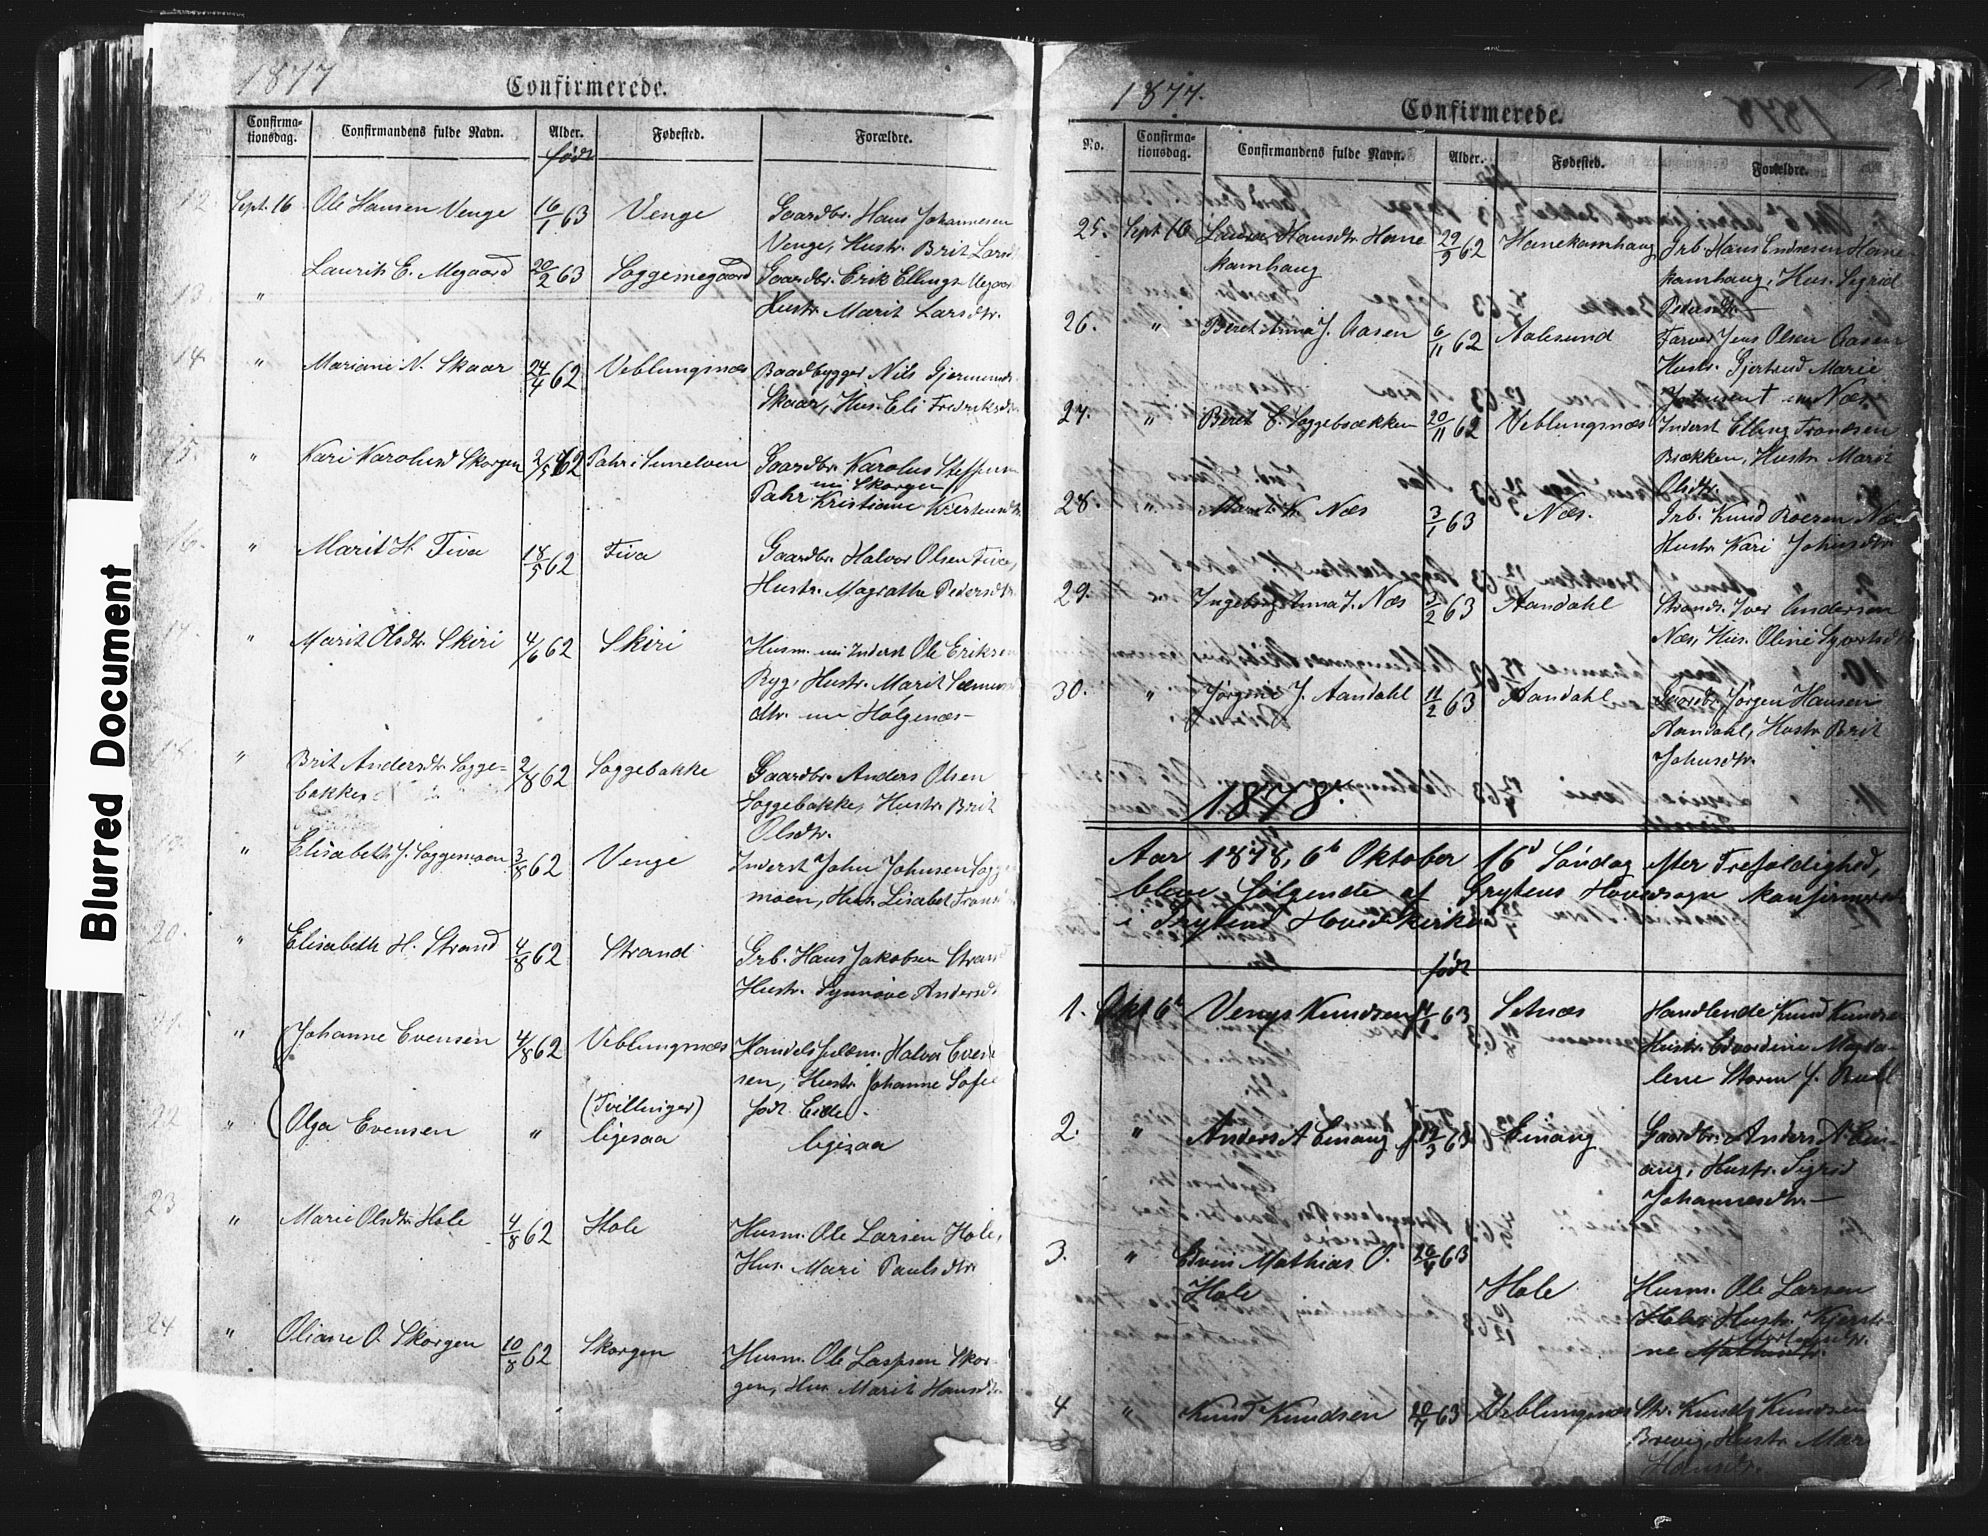 Blurred Document
1877
Confirmerede.
Confirma-
tionsdag.
Confirmandens fulde Navn.
Alder.
født
Fødested.
Forældre.
12. Sept. 16 Ole Hansen Venge 16/1 63 Venge Gaardbr. Hans Johannesen
Venge, Hustr. Brit Larsd
13. " Laurits E. Megaard 20/2 63 Soggemegaard Gaardbr. Erik Ellings. Megaar
Hustr. Marit Larsdtr.
14. " Mariane N. Skaar 24/4 62 Veblungsnæs Baadbygger Nils Gjermunds.
Skaar, Hus. Eli Fredriksdtr.
15. " Kari Karolusd Skorgen 2/5 62 Pahr i Sunelven Gaardbr. Karolus Steffens
Pahr nu Skorgen
Kristiane
16. " Marit H. Fiva 18/5 62 Fiva Gaardbr. Halvor Olsen Fiva,
Hustr. Magrathe Pedersdtr.
17. " Marit Olsdtr. Skiri 4/6 62 Skiri Husm. nu Inderst Ole Eriksen
Byg, Hustr. Marit
dtr. nu Holgenæs
18. " Brit Andersdtr. Sogge- 2/8 62 Soggebakke Gaardbr. Anders Olsen
bakke Soggebakke, Hustr. Brit
Olsdtr.
19. " Elisabeth J. Soggemoen 3/8 62 Venge Inderst John Johnsen Sogge
moen, Hus. Lisabet
20. " Elisabeth H. Strand 4/8 62 Strand Grb. Hans Jakobsen Strand
Hustr. Synnøve Andersdt
21. " Johanne Evensen 4/8 62 Veblungsnæs Handelsfuldm. Halvor Even
sen, Hustr. Johanne Sofie
(Tvillinger) født Eide
22 " Olga Evensen " ligesaa ligesaa
23 " Marie Olsdtr. Hole 4/8 62 Hole Husm. Ole Larsen Hole,
Hus. Mari Paulsdtr.
24 " Oliane O. Skorgen 10/8 62 Skorgen Husm. Ole Laspsen Skor-
gen, Hus. Marit Hansdtr.
1877.
Confirmerede.
No.
Confirma-
tionsdag.
Confirmandens fulde Navn.
Alder.
Fødested.
Forældre.
25. Sept 16 Laura Hansdtr. Hane 29/9 62 Hanekamhaug Grb. Hans Endresen Hane
kamhaug kamhaug, Hus. Sigrid
Pedersdtr.
26. " Beret Anna J. Aasen 6/11 62 Aalesund Farver Jens Olsen Aasen
Hustr. Gjertrud Marie
Johnsen † Næs
27. " Beret E. Soggebrækken 20/11 62 Veblungsnæs Inderst Elling Trondsen
Brækken, Hustr. Marit
Olsdtr.
28. " Marit K. Næs 3/1 63 Næs. Grb. Knud Roeren Næs
Hustr. Kari Johnsdtr.
29. " Ingeborg Anna I. Næs 3/2 63 Aandahl Strands. Iver Andersen
Næs, Hus. Oline
30. " Jørgine J. Aandahl 11/2 63 Aandahl Gaardbr. Jørgen Hansen
Aandahl, Hustr. Brit
Johnsdtr.
1878.
Aar 1878, 6te Oktober 16d Søndag efter Trefoldighed,
bleve følgende af Grytens Hovedsogn konfirmerede
i Grytens Hovedkirke
født
1. Okt 6te Venys Knudsen /1 63 Setnæs Handlende Knud Knudsen
Hustr. Edvardine Magda-
lene Storm f. Bull
2. " Anders A Einang 14/3 63 Einang Gaardbr. Anders A. Ein-
ang, Hustr. Sigrid
Johannesdtr.
3. " Even Mathias O. 26/4 63
Hole Hole Husm. Ole Larsen
Hole, Hustr. Kjersti-
ne
4 " Knud Knudsen 20/7 63 Veblungsnæs Str. Knud Knudsen
Brevig, Hustr. Mar
Hansdtr.